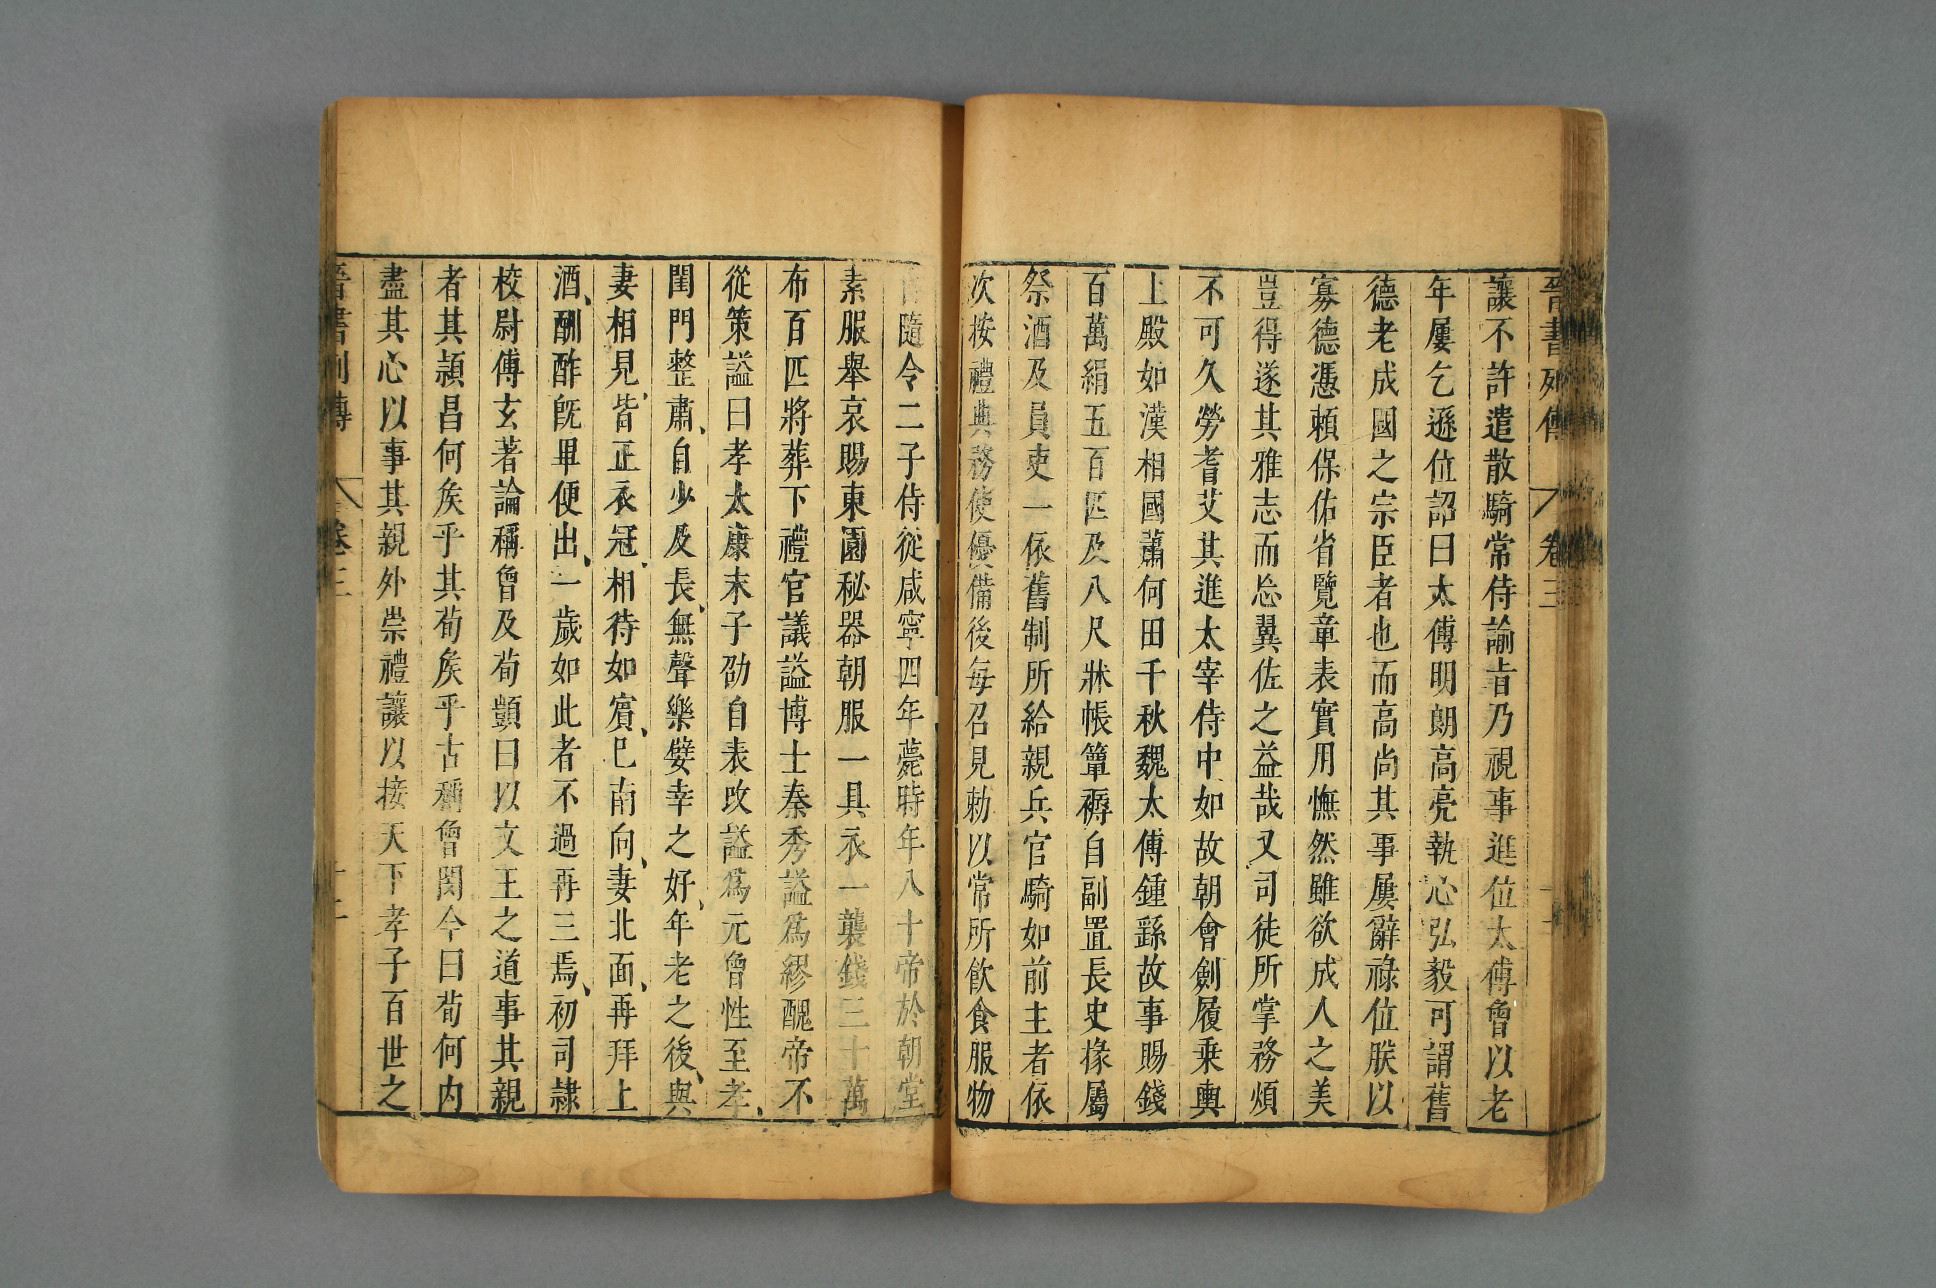 晉書列傳 卷三
讓不許遣散騎常侍諭旨乃視事進位太傅曾以老
年屢乞遜位詔曰太傅明朗高亮執心弘毅可謂舊
德老成國之宗臣者也而高尚其事屢辭祿位朕以
寡德憑賴保佑省覽章表實用憮然雖欲成人之美
豈得遂其雅志而忘翼佐之益哉又司徒所掌務煩
不可久勞耆艾其進太宰侍中如故朝會劍履乗輿
上殿如漢相國蕭何田千秋魏太傅鍾繇故事賜錢
百萬絹五百匹及八尺牀帳簟褥自副置長史掾屬
祭酒及員吏一依舊制所給親兵官騎如前主者依
次按禮典務使優備後每召見勑以常所飲食服物
自隨令二子侍從咸寧四年薨時年八十帝於朝堂
素服舉哀賜東園秘器朝服一具衣一襲錢三十萬
布百匹將葬下禮官議謚博士秦秀謚爲繆醜帝不
從策謚曰孝太康末子劭自表改謚爲元曾性至孝
閨門整肅自少及長無聲樂嬖幸之好年老之後與
妻相見皆正衣冠相待如賓已南向妻北面再拜上
酒酬酢旣畢便出一歲如此者不過再三焉初司隷
校尉傅玄著論稱曾及荀顗曰以文王之道事其親
者其潁昌何矦乎其荀矦乎古稱曾閔今曰荀何内
盡其心以事其親外崇禮讓以接天下孝子百世之
晉書列傳 卷三 十二